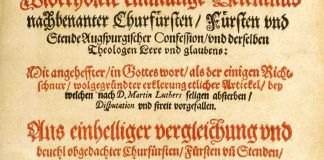 Widerholte einmütige Bekentnus
nachbenanter Churfürsten / Fürsten vnd
Stende Augspurgischer Confession / vnd derselben
Theologen Lere vnd glaubens:
Mit angeheffter / in Gottes wort / als der einigen Richt-
schnur / wolgegründter erklerung etlicher Artickel / bey
welchen nach D. Martin Luthers seligen absterben /
Disputation vnd streit vorgefallen.
Aus einhelliger vergleichung vnd
beuehl obgedachter Churfürsten / Fürsten vñ Stenden /